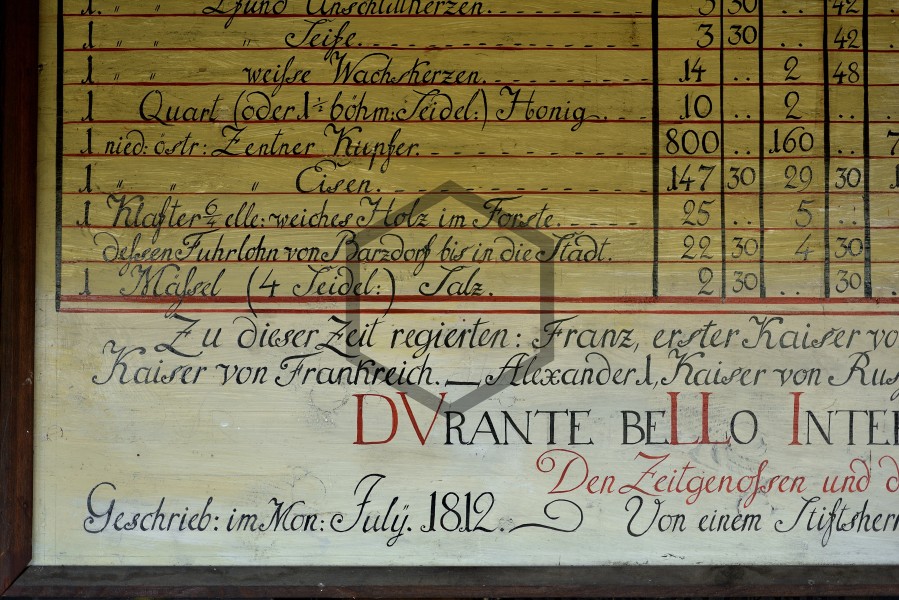 1. " " Pfund Unschlittkerzen. 3 30 .. 42
1 " " " Seife. 3 30 .. 42
1 " " weiſse Wachskerzen. 14 .. 2 48
1 Quart (oder 1½ böhm: Seidel:) Honig. 10 .. 2 ..
1 nied: östr: Zentner Kupfer. 800 .. 160 .. 7
1 " " " Eisen. 147 30 29 30 1
1 Klafter 6/4 elle: weiches Holz im Forste. 25 .. 5 ..
deſsen Fuhrlohn von Barzdorf bis in die Stadt. 22 30 4 30
1 Mäſsel (4 Seidel:) Salz. 2 30 .. 30
Zu dieser Zeit regierten: Franz, erster Kaiser vo
Kaiser von Frankreich. — Alexander 1, Kaiser von Ruſs
DVRANTE BELLO INTER
Den Zeitgenoſsen und d
Geschrieb: im Mon: Julÿ. 1812. Von einem Stiftsherr